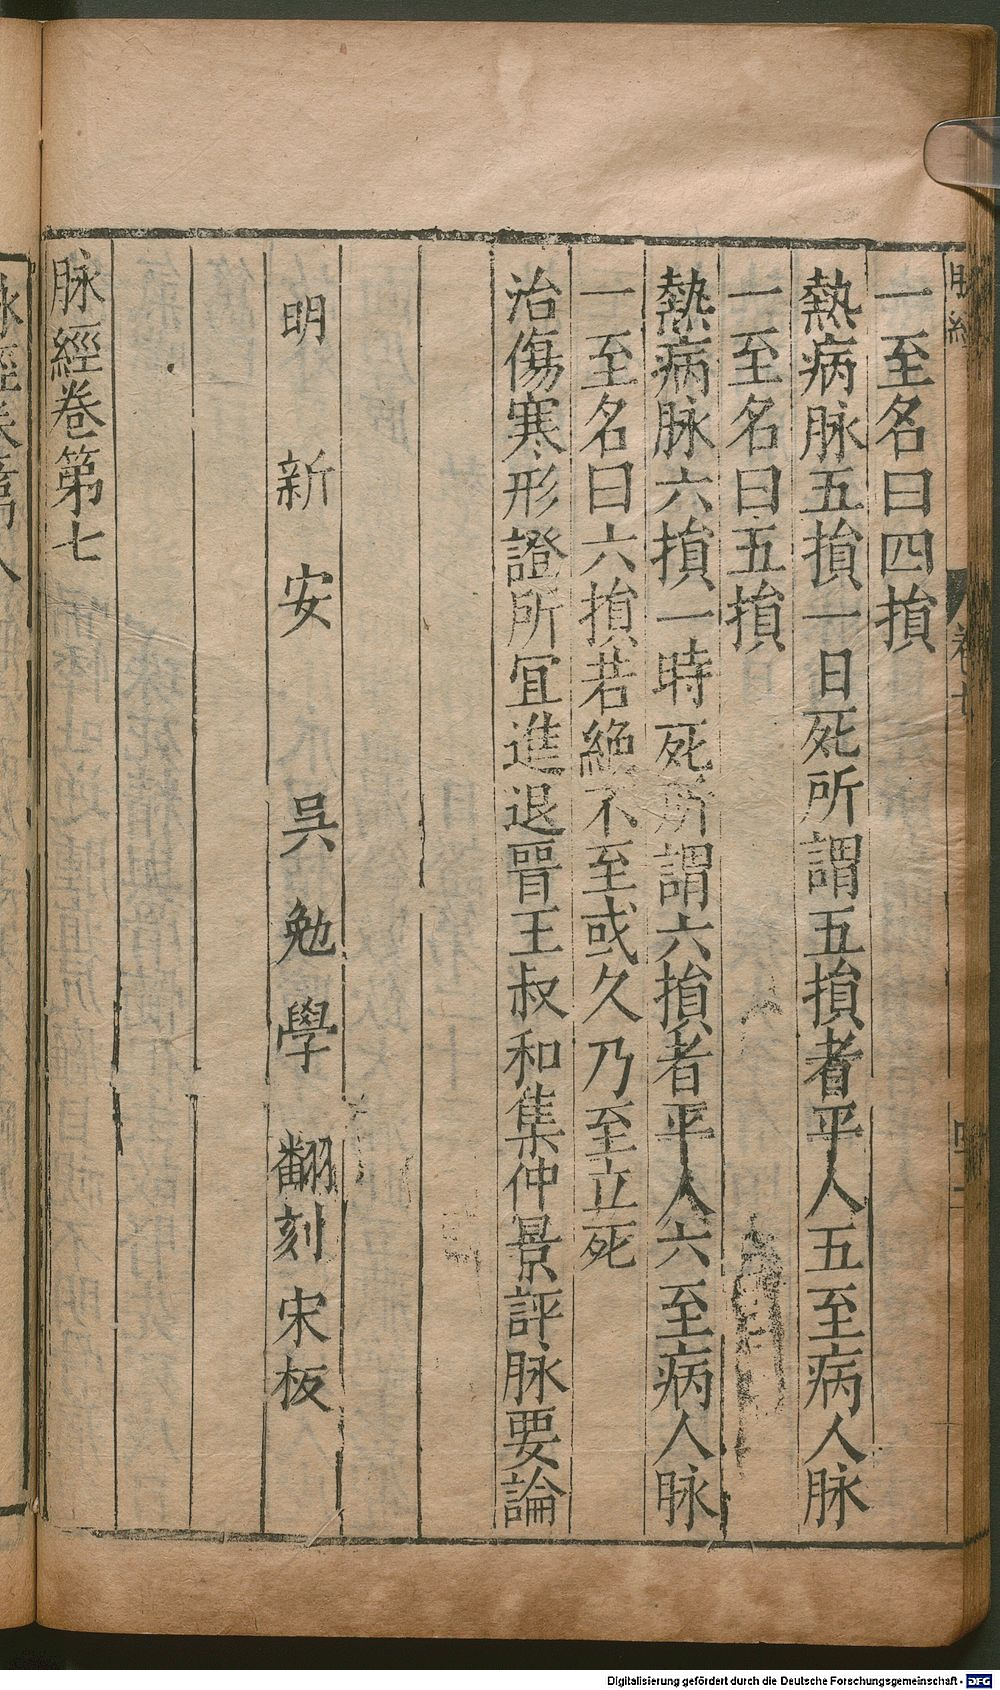 一至名曰四損
熱病脉五損一日死所謂五損者平人五至病人脉
一至名曰五損
熱病脉六損一時死所謂六損者平人六至病人脉
一至名曰六損若絶不至或久乃至立死
治傷寒形證所宜進退晉王叔和集仲景評脉要論
明新安吳勉學翻刻宋板
脉經卷第七
Digitalisierung gefördert durch die Deutsche Forschungsgemeinschaft - DFG